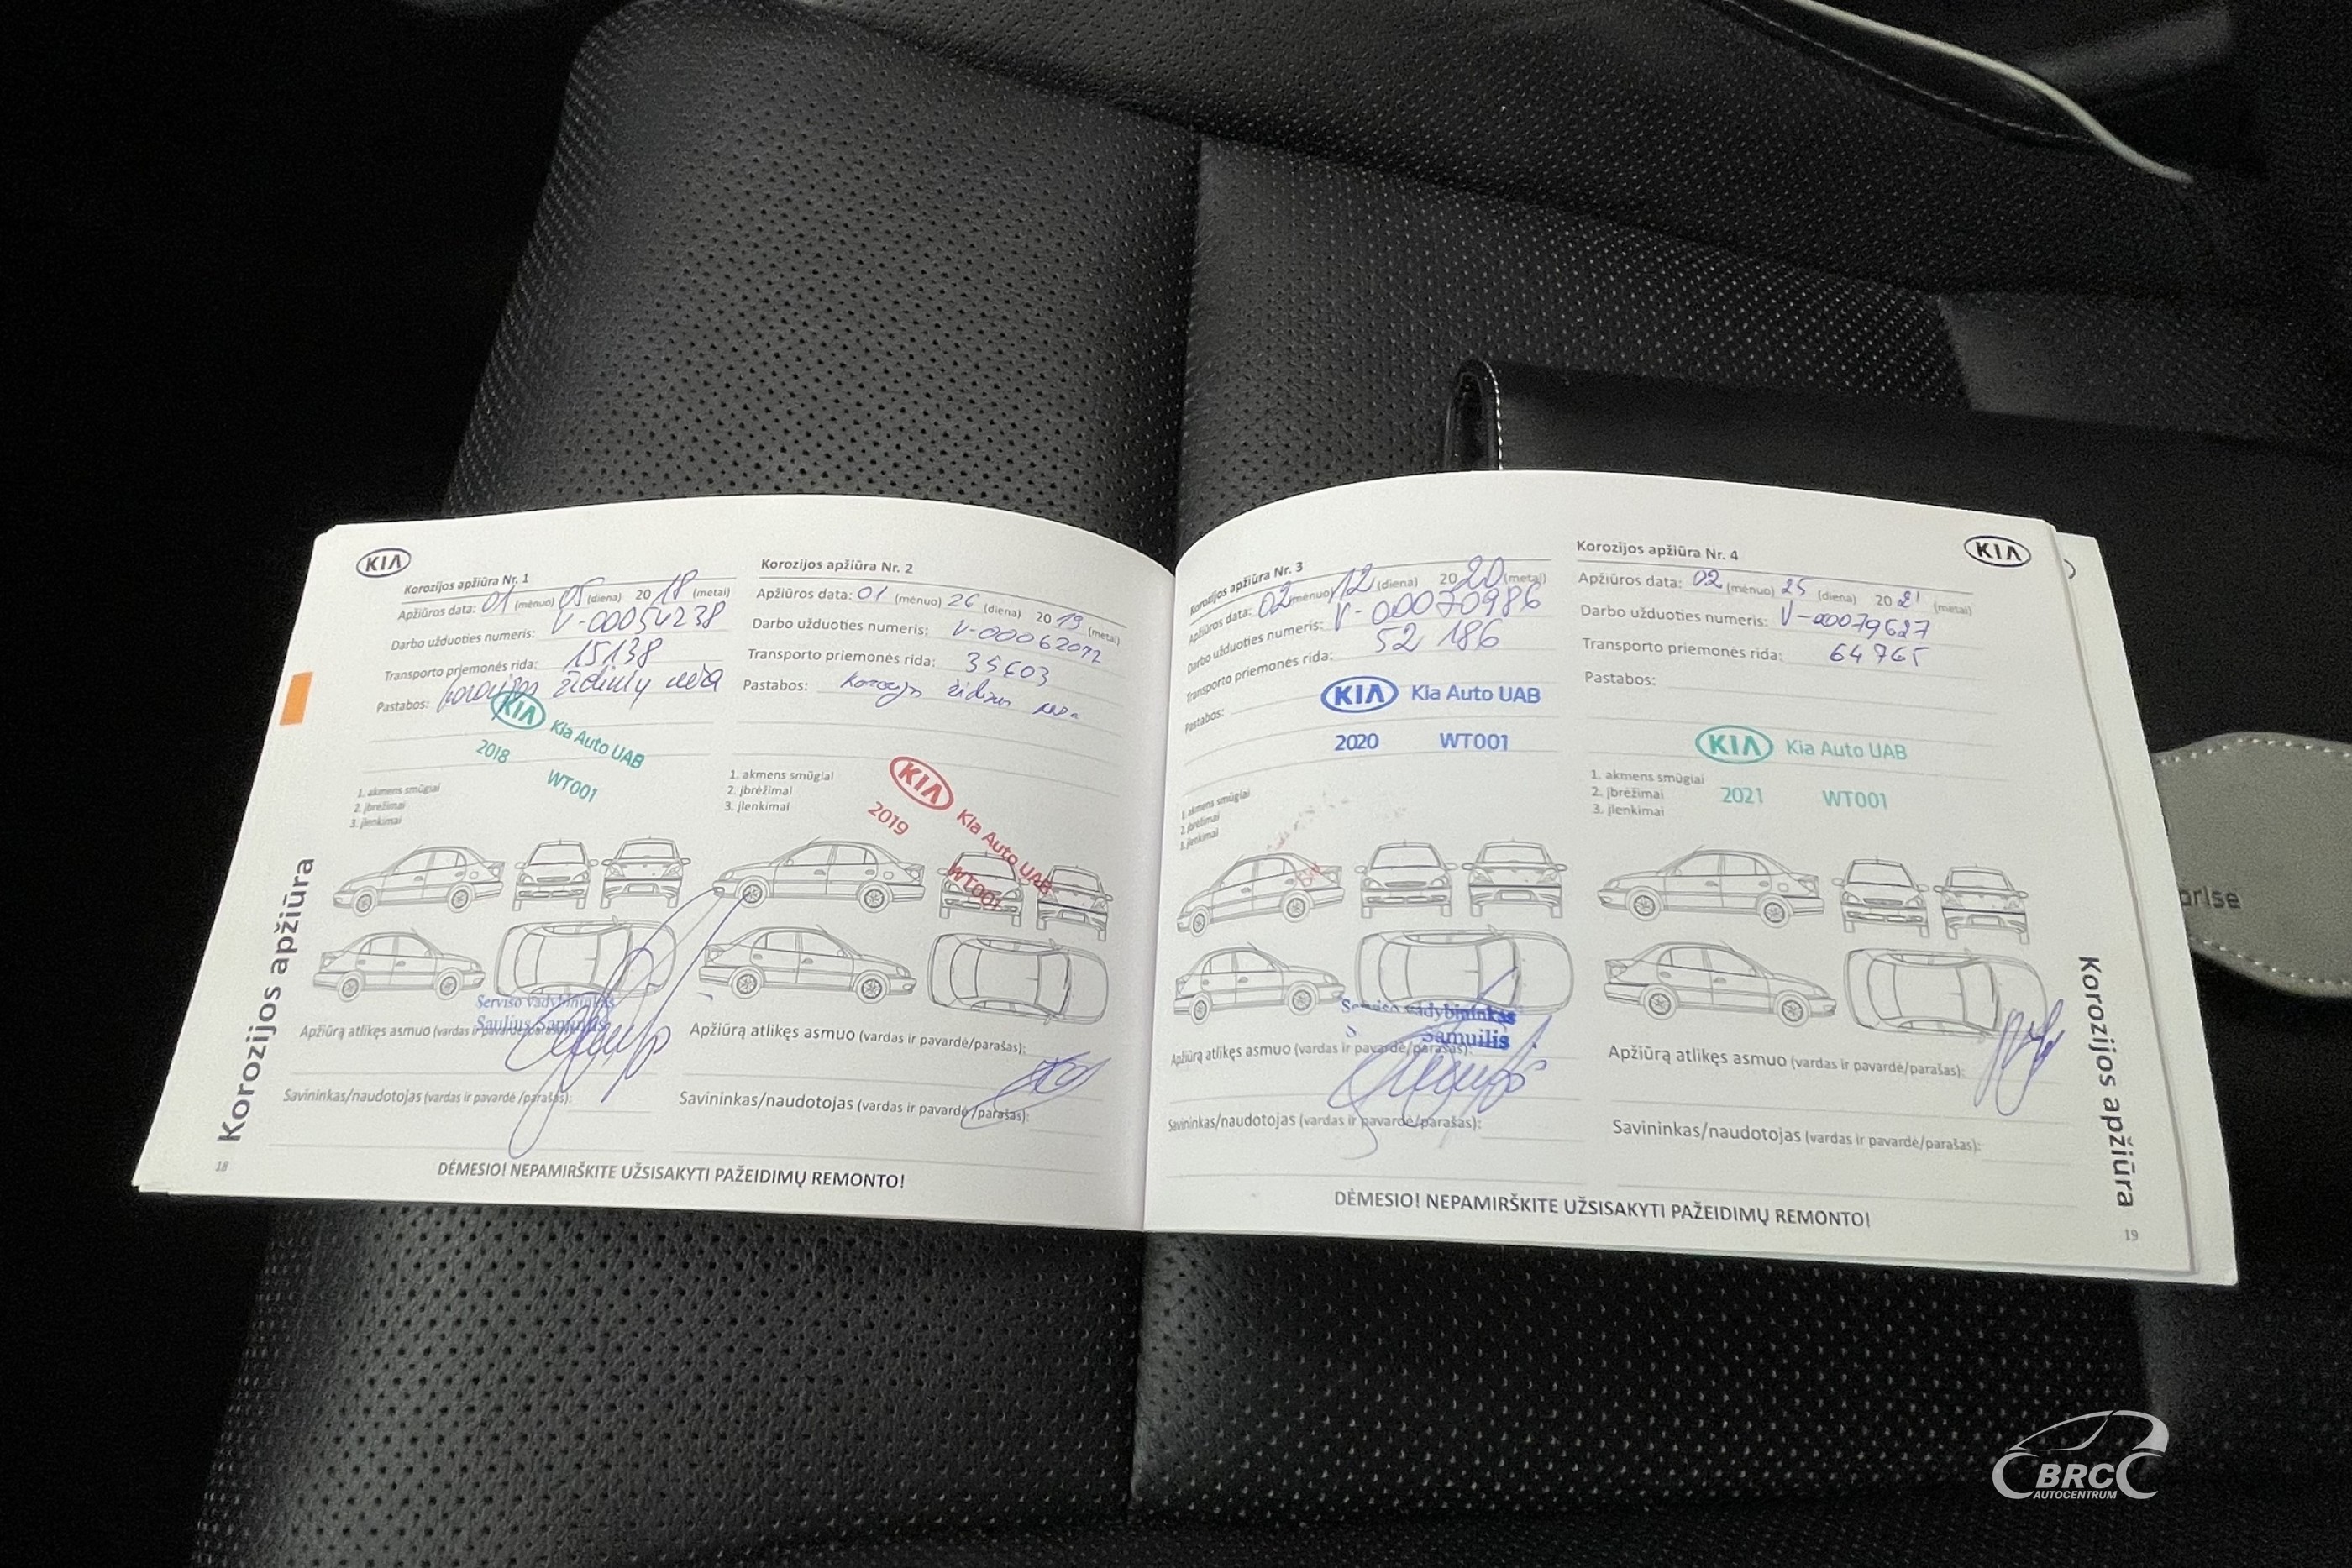 KIA
Korozijos apžiūra Nr. 1
Apžiūros data: 01 (mėnuo) 05 (diena) 20 18 (metai)
Darbo užduoties numeris: V-00054238
Transporto priemonės rida: 15138
Pastabos: Korozijos židinių nėra
KIA Kia Auto UAB
2018 WT001
1. akmens smūgiai
2. įbrėžimai
3. įlenkimai
Serviso vadybininkas
Saulius Samuilis
Apžiūrą atlikęs asmuo (vardas ir pavardė/parašas):
Savininkas/naudotojas (vardas ir pavardė /parašas):
Korozijos apžiūra Nr. 2
Apžiūros data: 01 (mėnuo) 26 (diena) 20 19 (metai)
Darbo užduoties numeris:
Transporto priemonės rida: 35603
Pastabos:
KIA Kia Auto UAB
2019 WT001
1. akmens smūgiai
2. įbrėžimai
3. įlenkimai
Apžiūrą atlikęs asmuo (vardas ir pavardė/parašas):
Savininkas/naudotojas (vardas ir pavardė /parašas):
Korozijos apžiūra
18
DĖMESIO! NEPAMIRŠKITE UŽSISAKYTI PAŽEIDIMŲ REMONTO!
Korozijos apžiūra Nr. 3
Apžiūros data: 02 (mėnuo) 12 (diena) 20 20 (metai)
Darbo užduoties numeris: V-00070986
Transporto priemonės rida: 52 186
Pastabos:
KIA Kia Auto UAB
2020 WT001
1. akmens smūgiai
2. įbrėžimai
3. įlenkimai
Serviso vadybininkas
Samuilis
Apžiūrą atlikęs asmuo (vardas ir pavardė/parašas):
Savininkas/naudotojas (vardas ir pavardė/parašas):
KIA
Korozijos apžiūra Nr. 4
Apžiūros data: 02 (mėnuo) 25 (diena) 20 21 (metai)
Darbo užduoties numeris: V-00079627
Transporto priemonės rida: 64765
Pastabos:
KIA Kia Auto UAB
2021 WT001
1. akmens smūgiai
2. įbrėžimai
3. įlenkimai
Apžiūrą atlikęs asmuo (vardas ir pavardė/parašas):
Savininkas/naudotojas (vardas ir pavardė/parašas):
Korozijos apžiūra
19
DĖMESIO! NEPAMIRŠKITE UŽSISAKYTI PAŽEIDIMŲ REMONTO!
BRC
AUTOCENTRUM